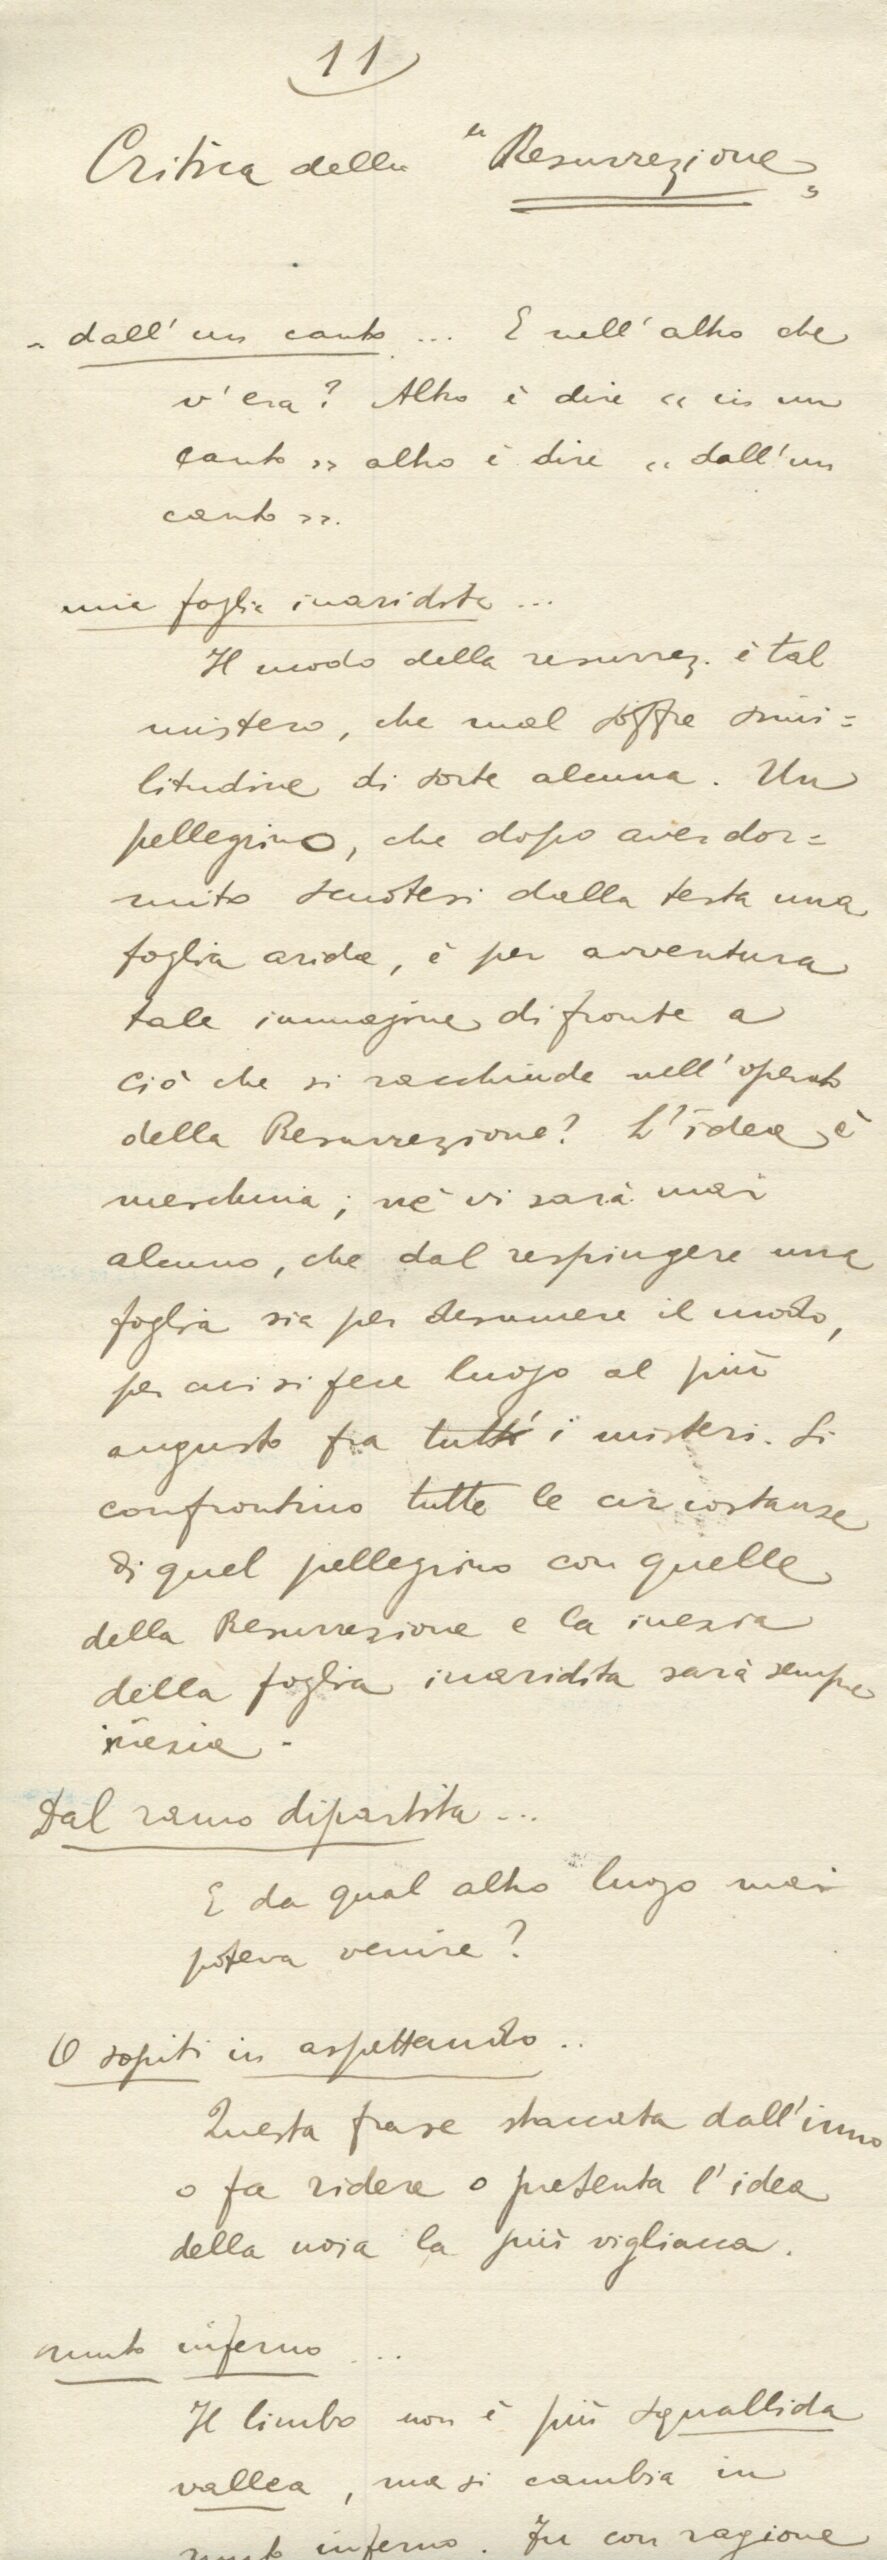 11
Critica della "Resurrezione"
- dall'un canto ... E nell'altro che
v'era? Altro è dire « in un
canto » altro è dire « dall'un
canto ».
una foglia inaridita ...
Il modo della resurrez. è tal
mistero, che mal soffre simi=
litudine di sorte alcuna. Un
pellegrino, che dopo aver dor=
mito scuotesi dalla testa una
foglia arida, è per avventura
tale immagine di fronte a
ciò che si racchiude nell'operato
della Resurrezione? L'idea è
meschina; nè vi sarà mai
alcuno, che dal respingere una
foglia sia per desumere il modo,
per cui si fece luogo al più
augusto fra tutti i misteri. Si
confrontino tutte le circostanze
di quel pellegrino con quelle
della Resurrezione e la inezia
della foglia inaridita sarà sempre
inezia.
Dal ramo dipartita ...
E da qual altro luogo mai
poteva venire?
O sopiti in aspettando ..
Questa frase staccata dall'inno
o fa ridere o presenta l'idea
della noia la più vigliacca.
muto inferno ...
Il limbo non è più squallida
vallea, ma si cambia in
muto inferno. Fu con ragione